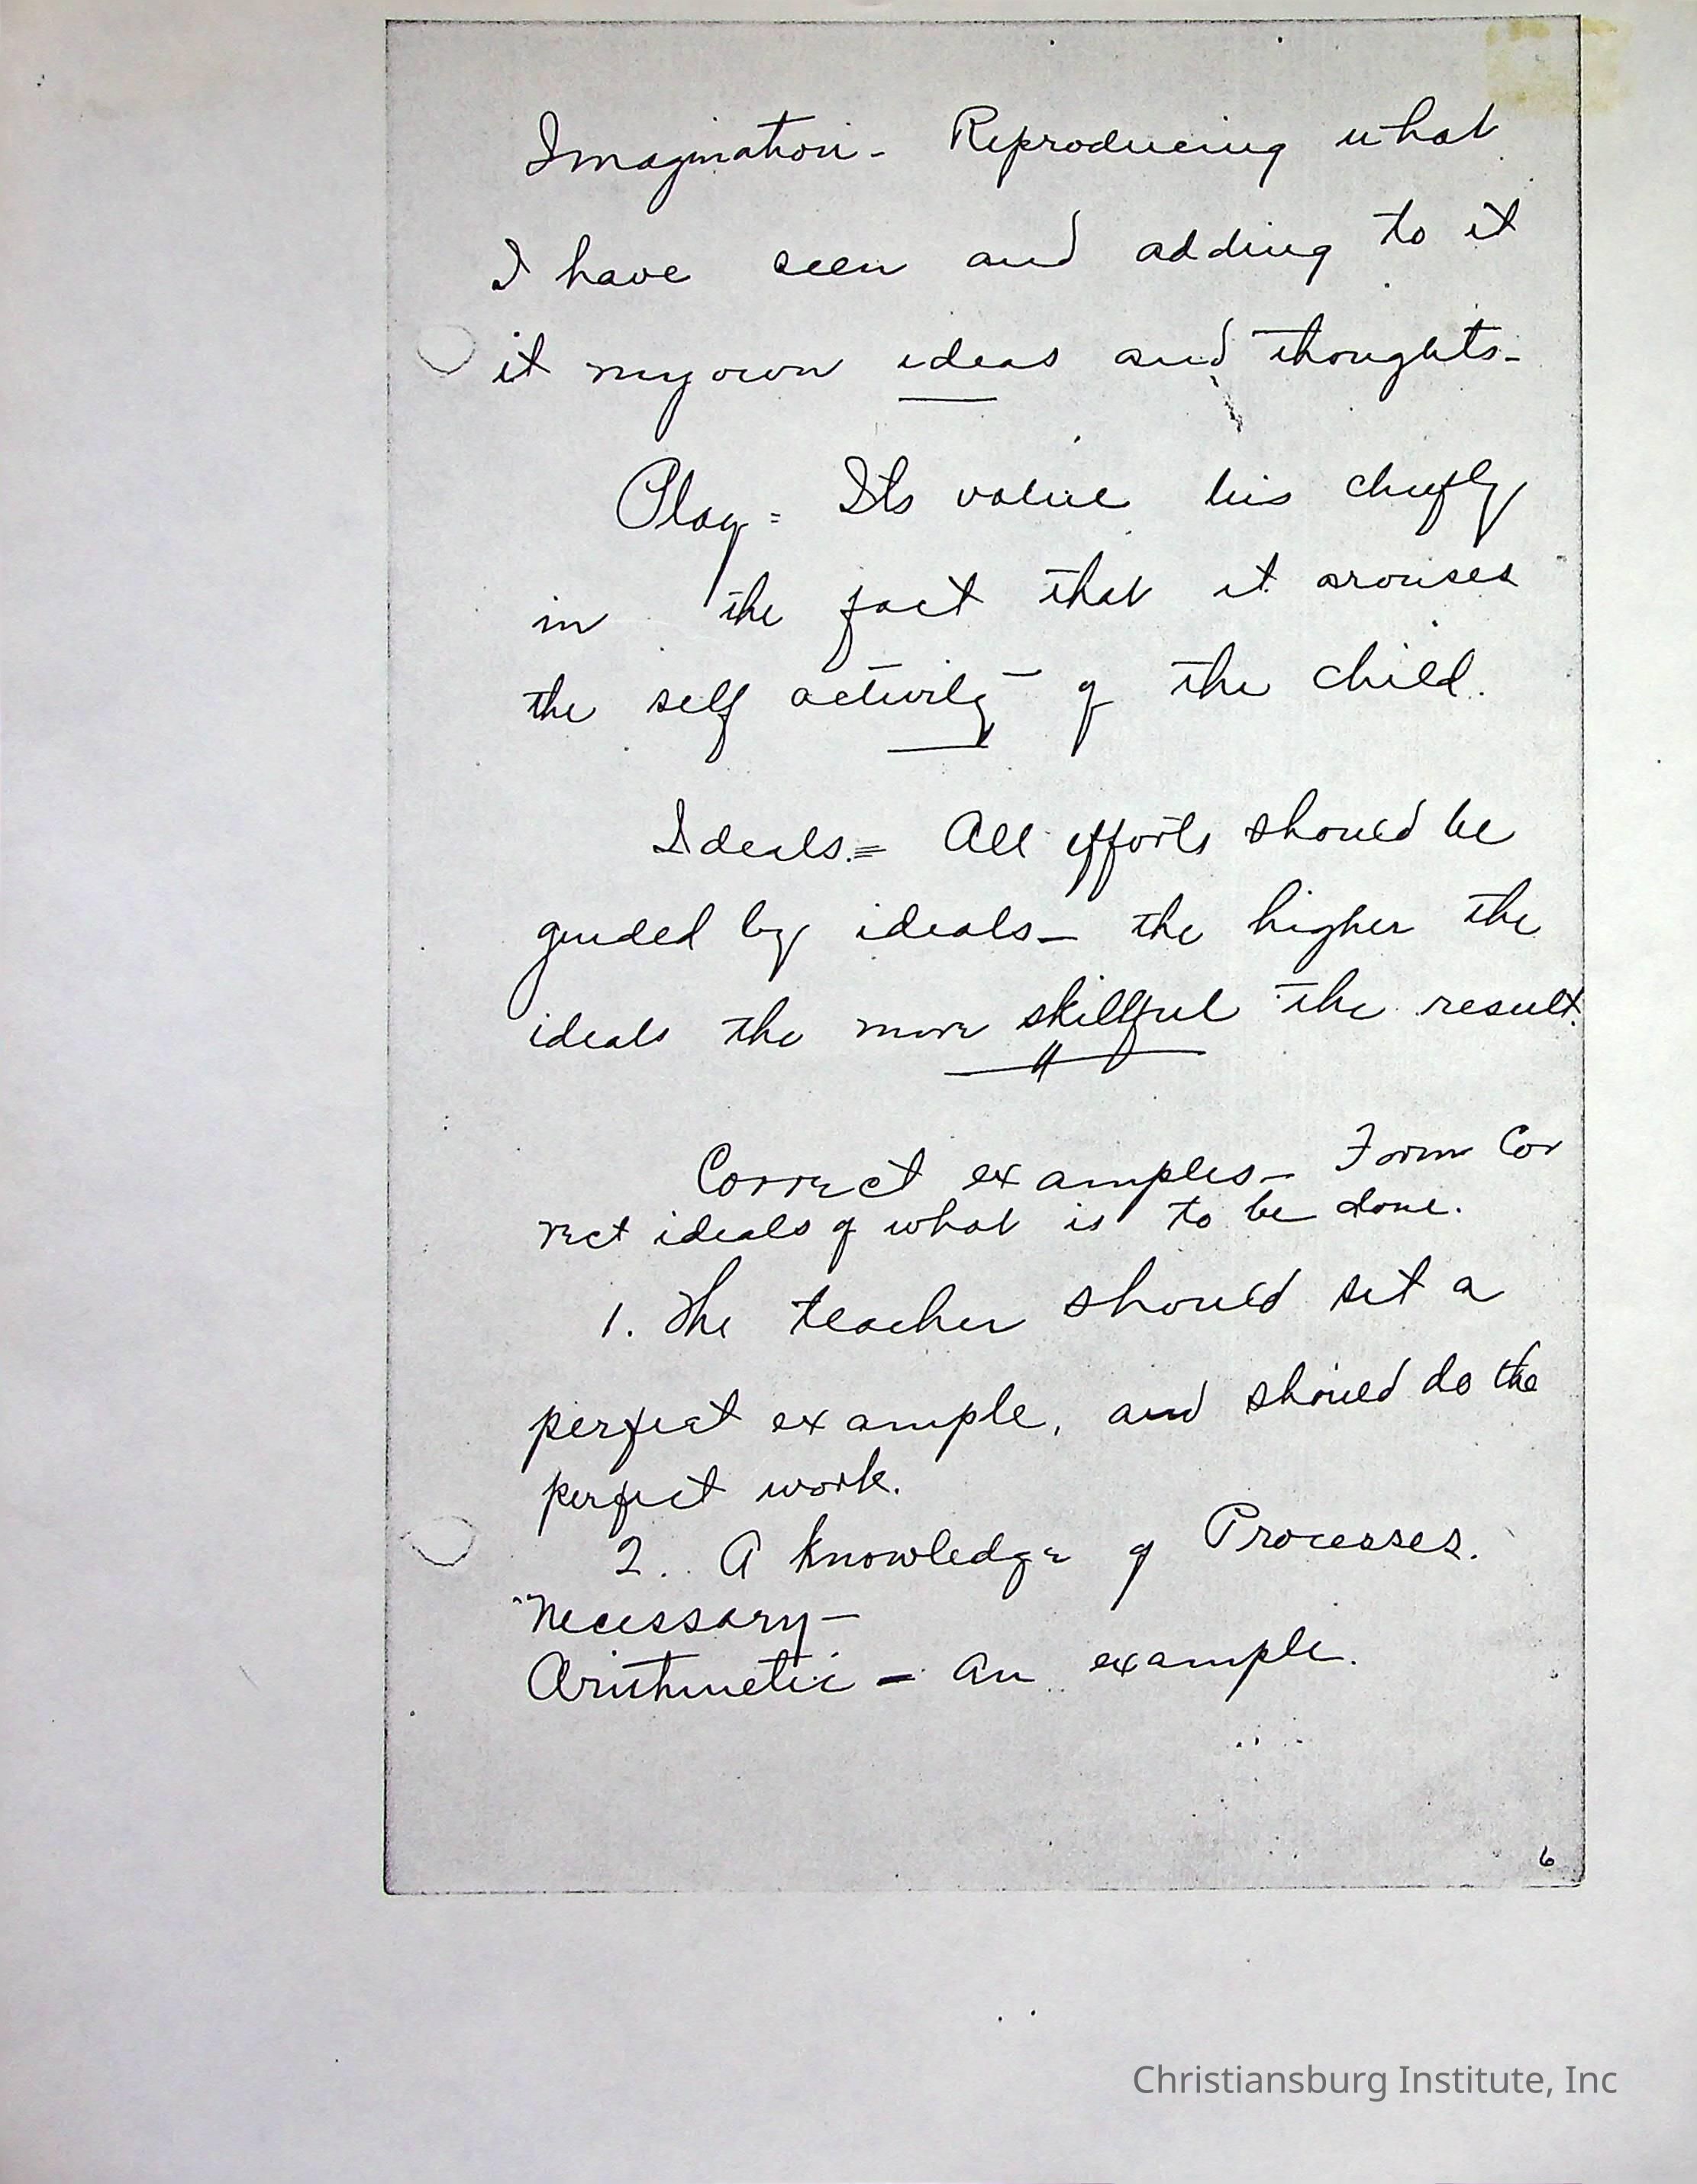 Imagination - Reproducing what
I have seen and adding to it
it my own ideas and thoughts -
Play = Its value lies chiefly
in the fact that it arouses
the self activity of the child.
Ideals. = All efforts should be
guided by ideals - the higher the
ideals the more skillful the result.
Correct examples - Form Cor
rect ideals of what is to be done.
1. The teacher should set a
perfect example, and should do the
perfect work.
2. A knowledge of Processes.
necessary -
Arithmetic - An example.
6
Christiansburg Institute, Inc